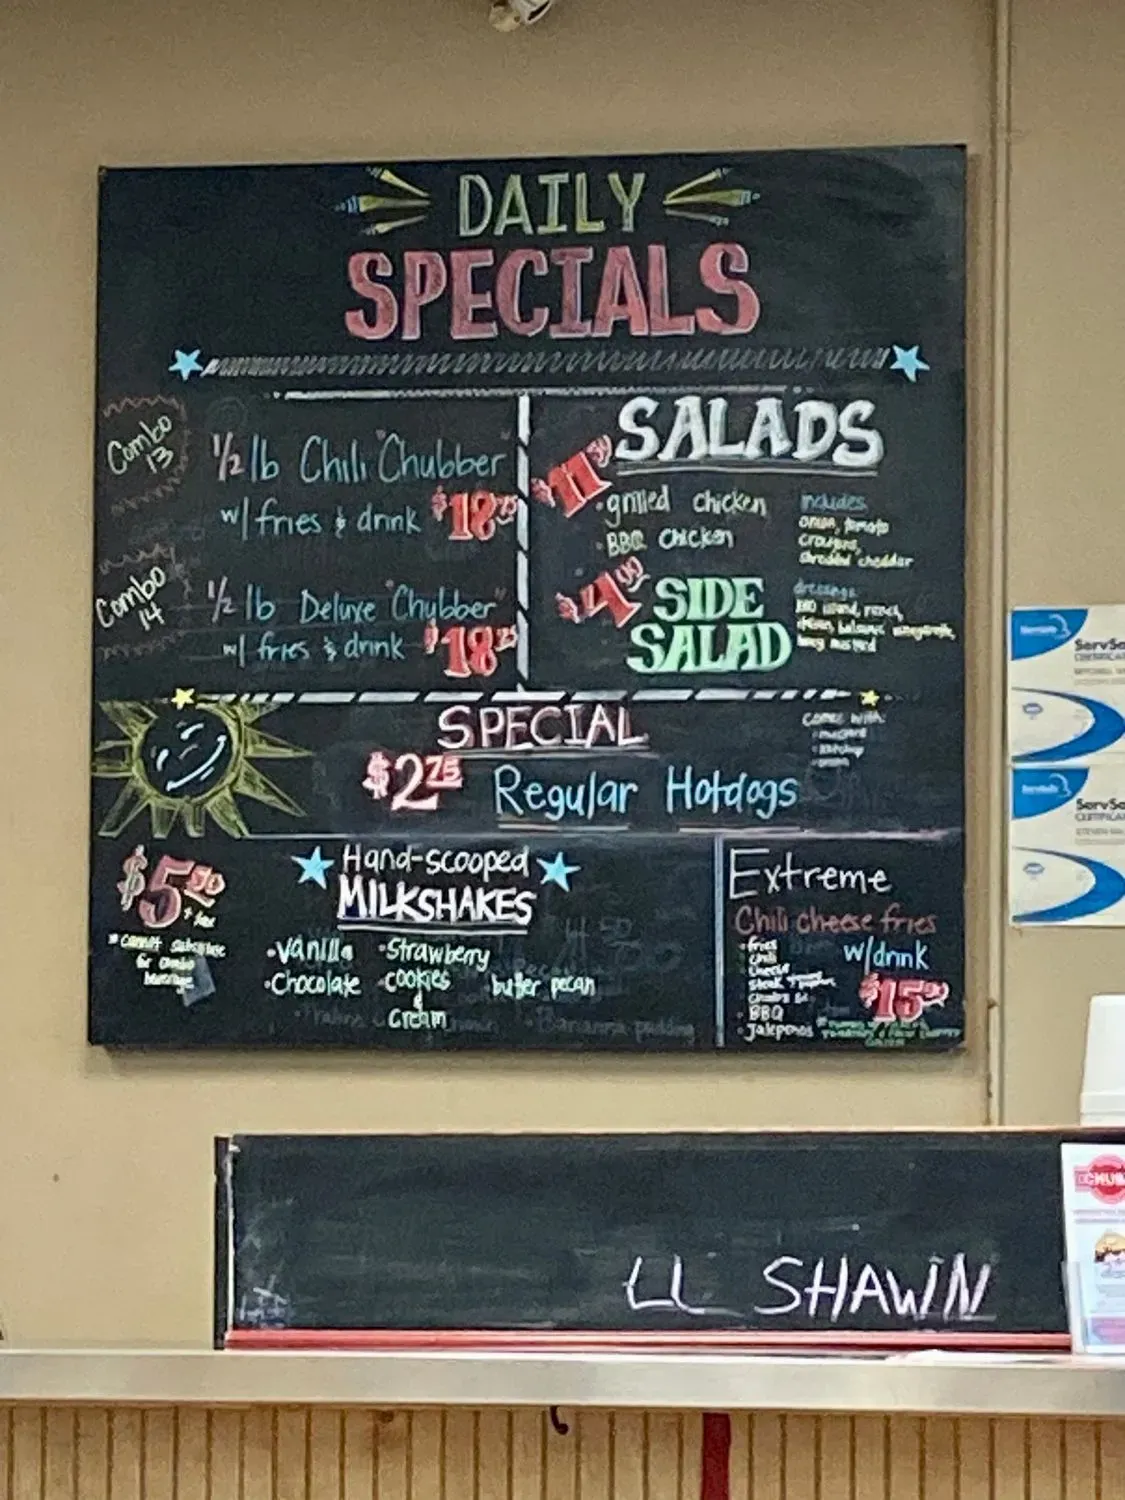 DAILY
SPECIALS
Combo
13
1/2 lb Chili "Chubber"
w/ fries & drink $18.75
Combo
14
1/2 lb Deluxe "Chubber"
w/ fries & drink $18.25
SALADS
$11.50
• grilled chicken
• BBQ Chicken
includes
onion, tomato
croutons,
shredded cheddar
$4.99
SIDE
SALAD
dressings
ranch,
balsamic vinegarette,
honey mustard
SPECIAL
$2.75 Regular Hotdogs
COMES WITH:
• mustard
• ketchup
• onion
$5.50
+ tax
* cannot substitute
for combo
beverage
Hand-scooped
MILKSHAKES
• Vanilla
• Chocolate
• Strawberry
• cookies
&
cream
butter pecan
• Banana pudding
Extreme
Chili cheese fries
w/drink
• fries
• chili
• cheese
• BBQ
• Jalepenos
LL SHAWN
ServSa
CERTIFICA
ServSa
CERTIFICA